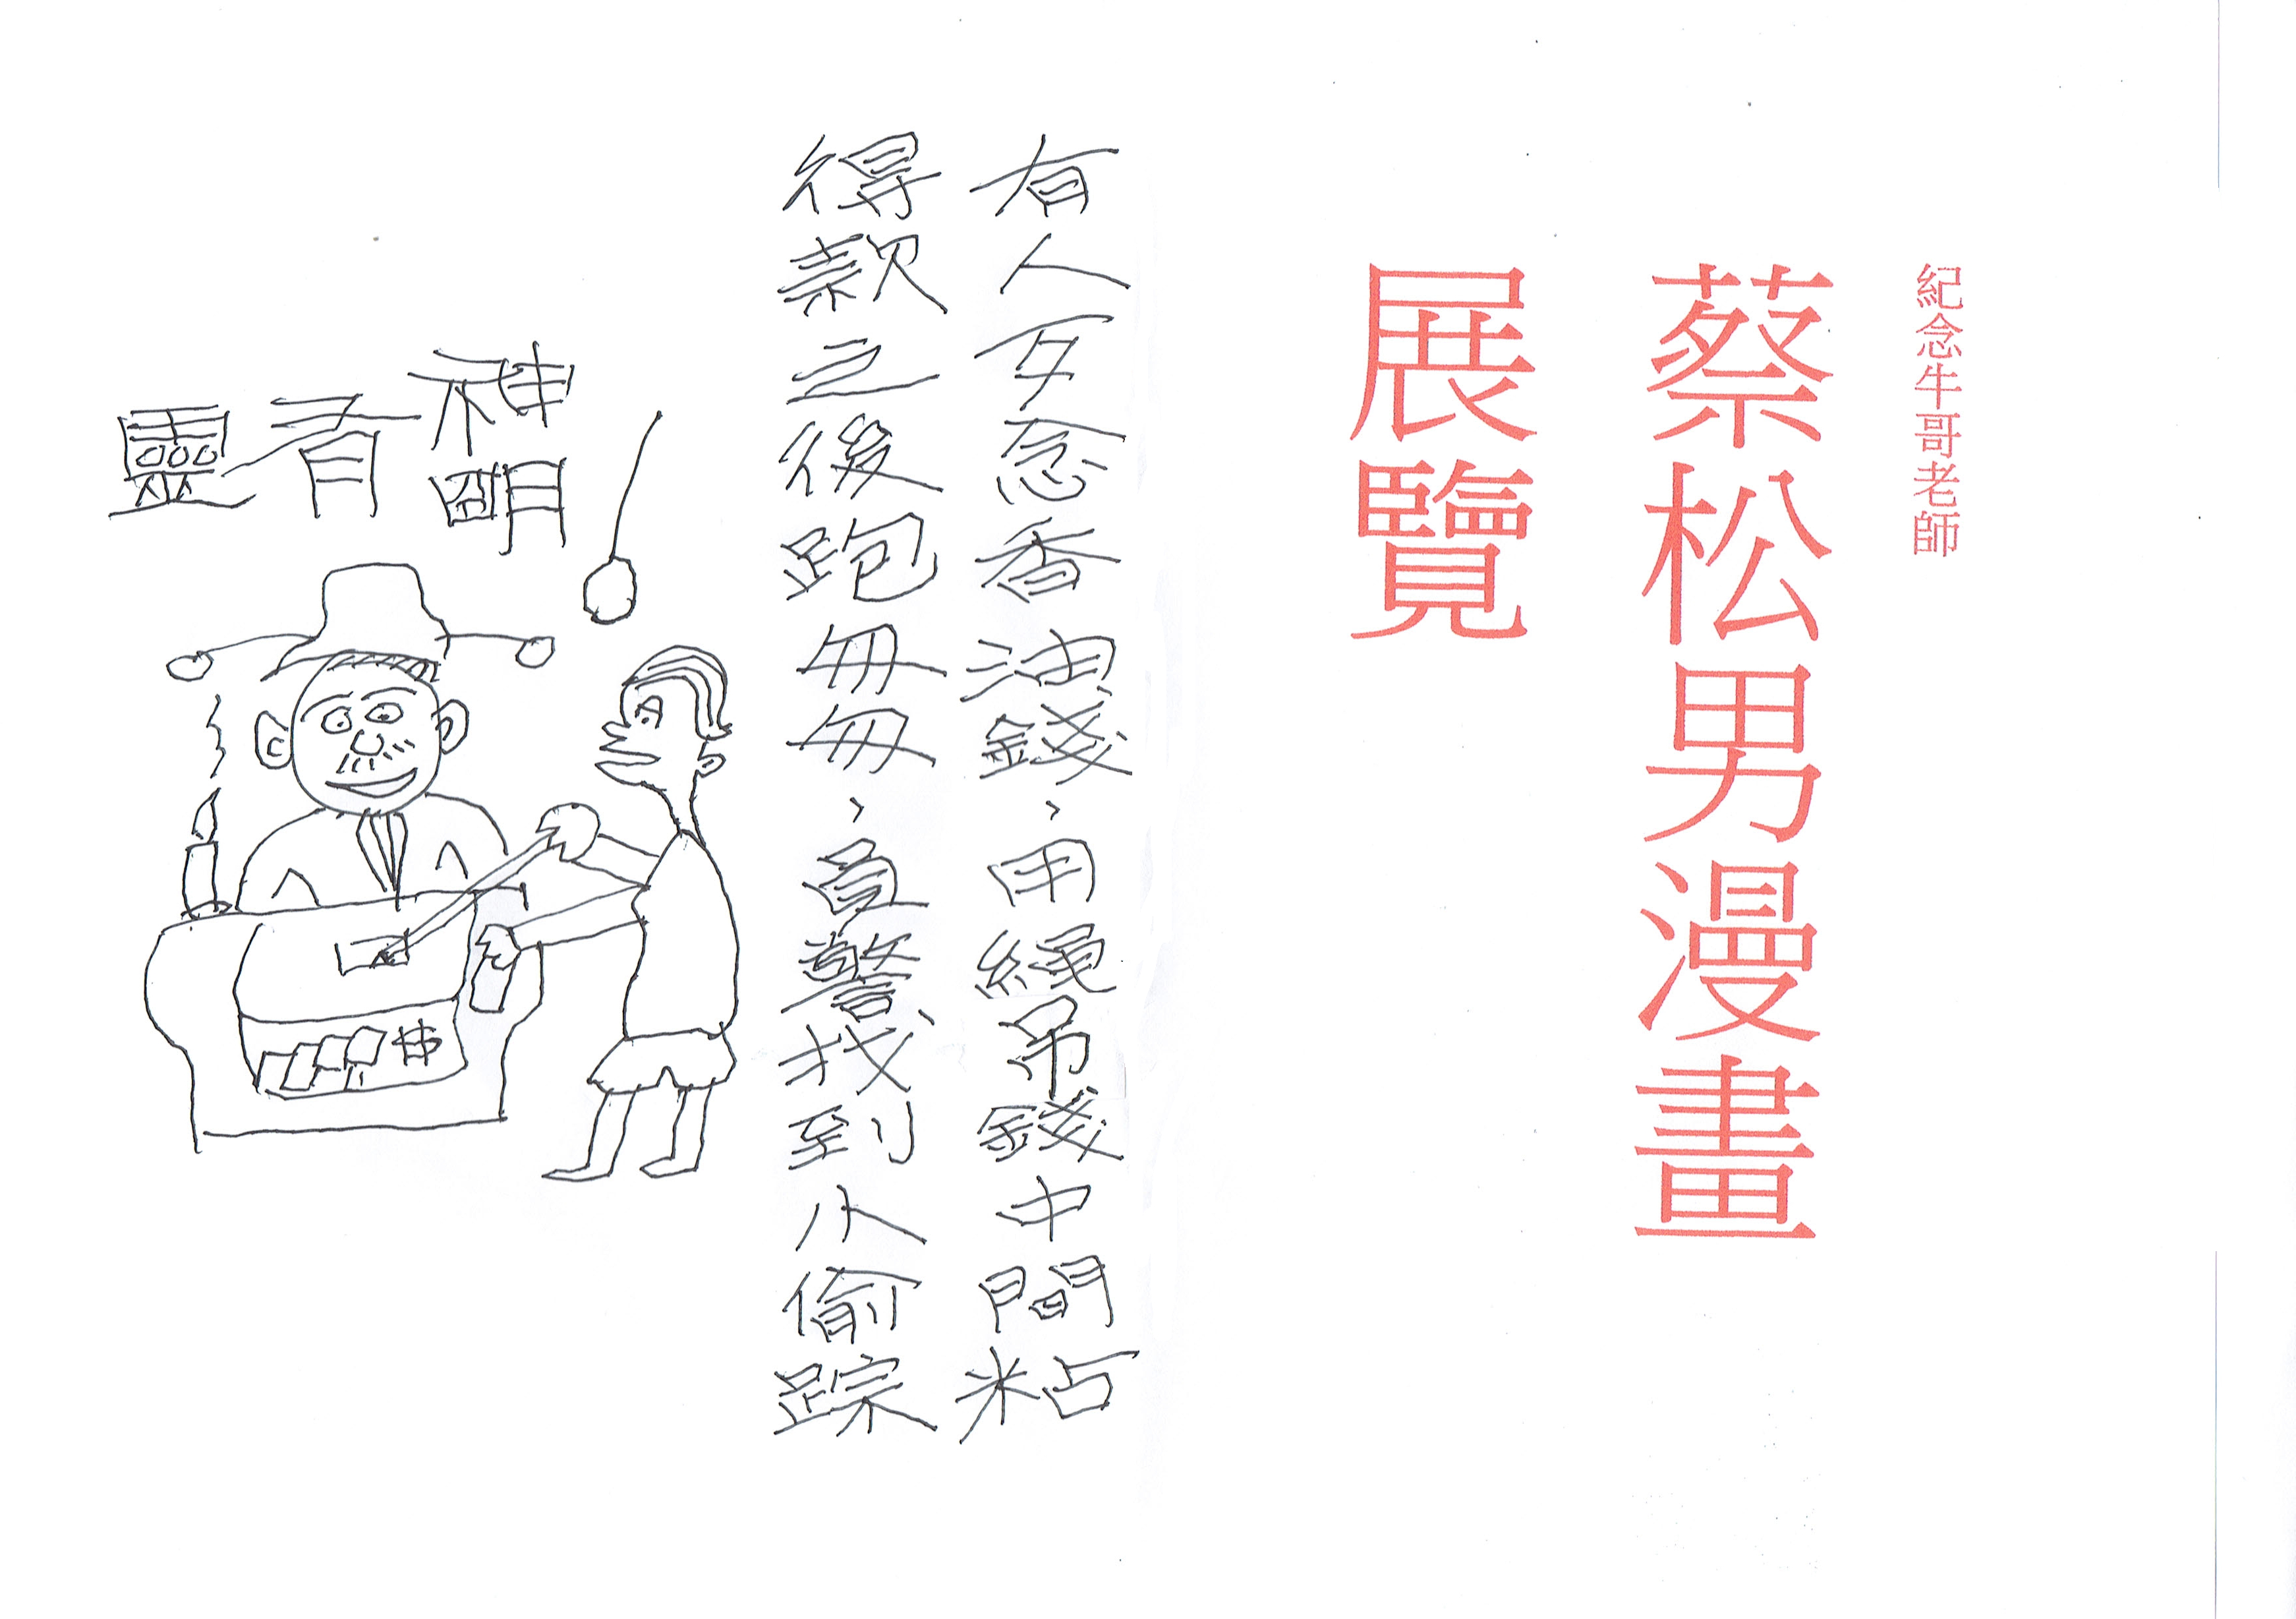 紀念牛哥老師
蔡松男漫畫
展覽
有人歹念香油錢、用繩吊錢中間粘
得款之後跑、員警找到小偷踪
神明有靈!